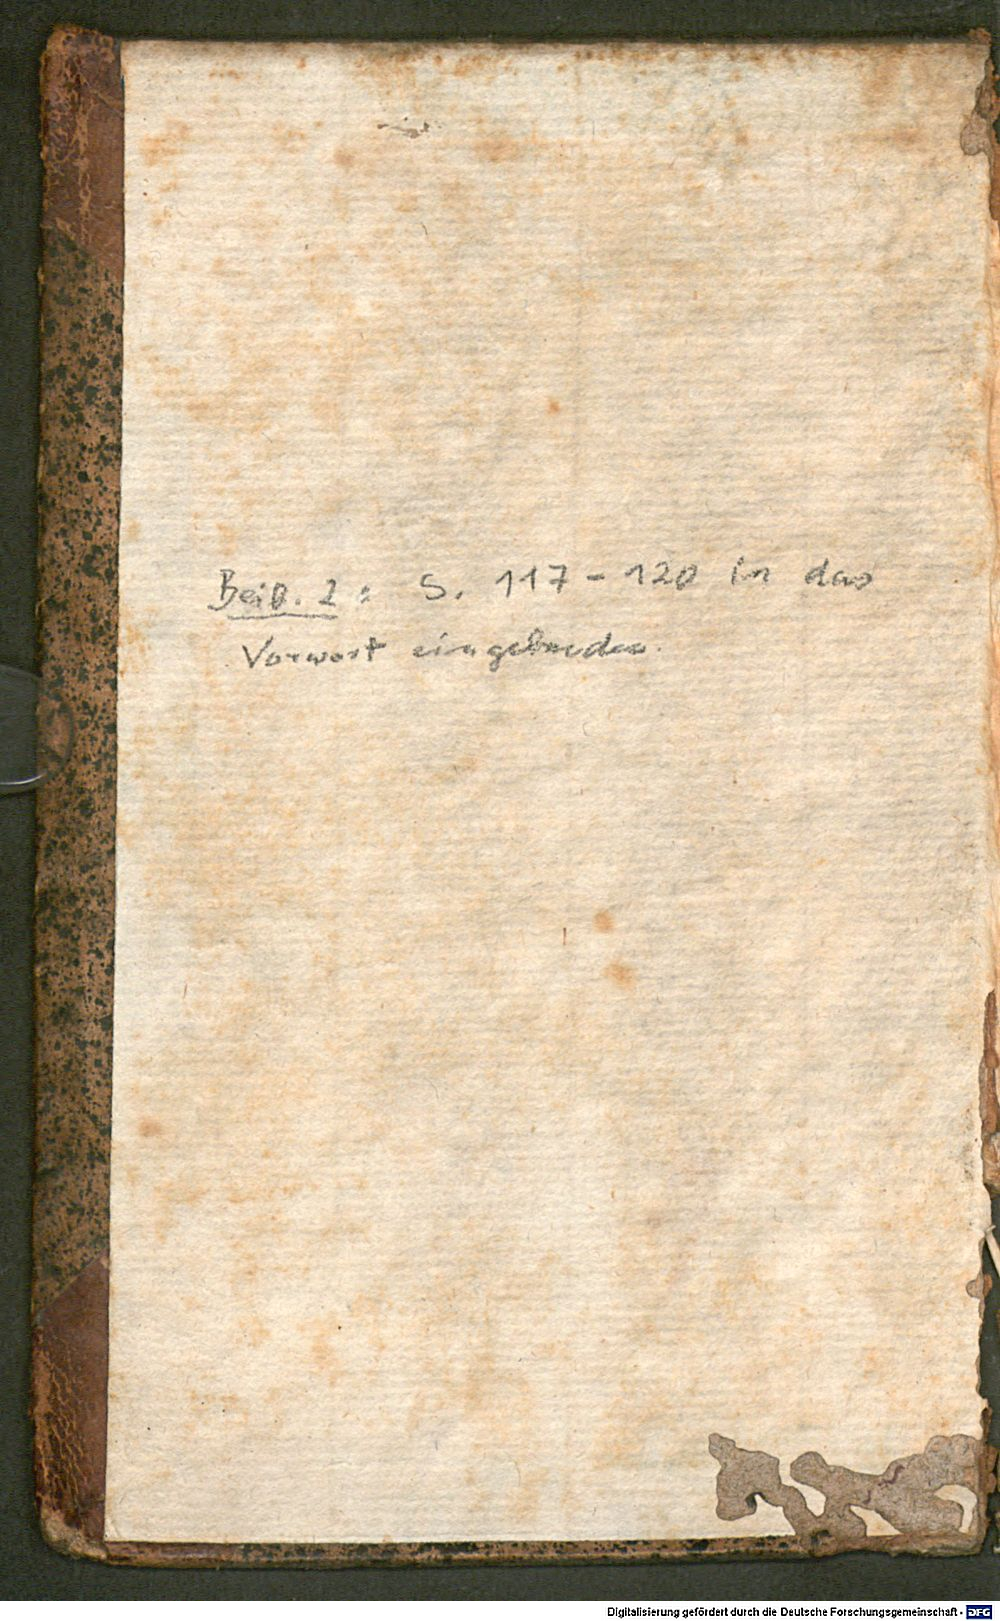 Beiß. 2: S. 117-120 in das
Vorwort eingebunden.
Digitalisierung gefördert durch die Deutsche Forschungsgemeinschaft - DFG